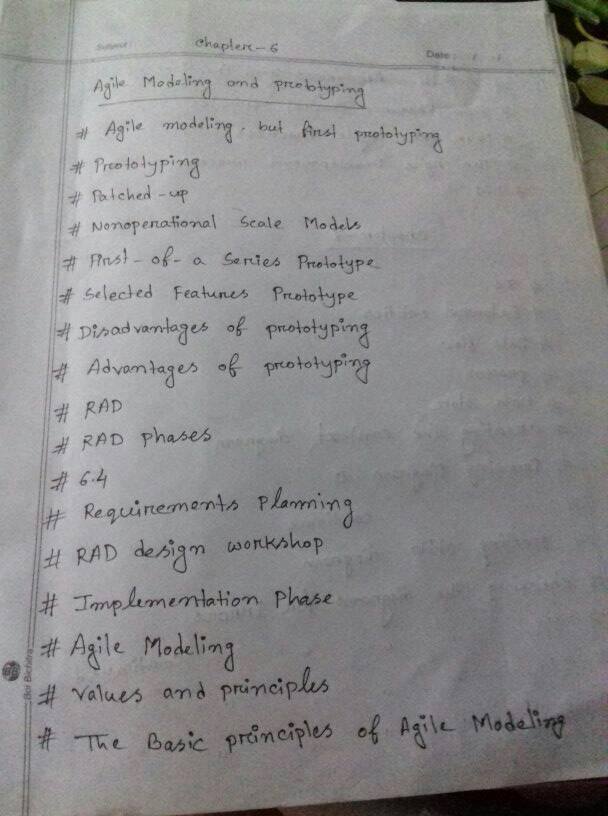 Subject :
Chapter-6
Date : / /
Agile Modeling and prototyping
# Agile modeling, but first prototyping
# Prototyping
# Patched-up
# Nonoperational Scale Models
# First-of-a Series Prototype
# Selected Features Prototype
# Disadvantages of prototyping
# Advantages of prototyping
# RAD
# RAD phases
# 6.4
# Requirements Planning
# RAD design workshop
# Implementation Phase
# Agile Modeling
# values and principles
# The Basic principles of Agile Modeling